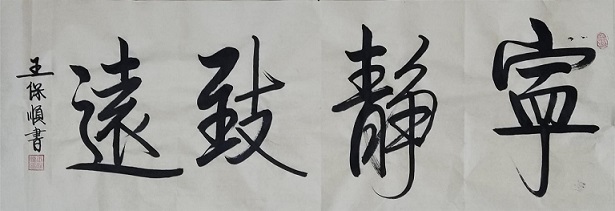 寧靜致遠
王保順書